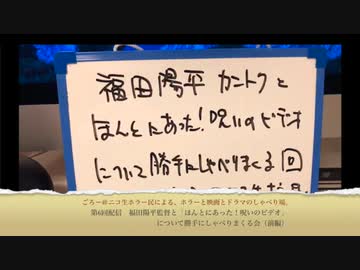 福田陽平カントクと
ほんとにあった!呪いのビデオ
について勝手にしゃべりまくる回
ごろー@ニコ生ホラー民による、ホラーと映画とドラマのしゃべり場。
第6回配信 福田陽平監督と「ほんとにあった!呪いのビデオ」
について勝手にしゃべりまくる会(前編)